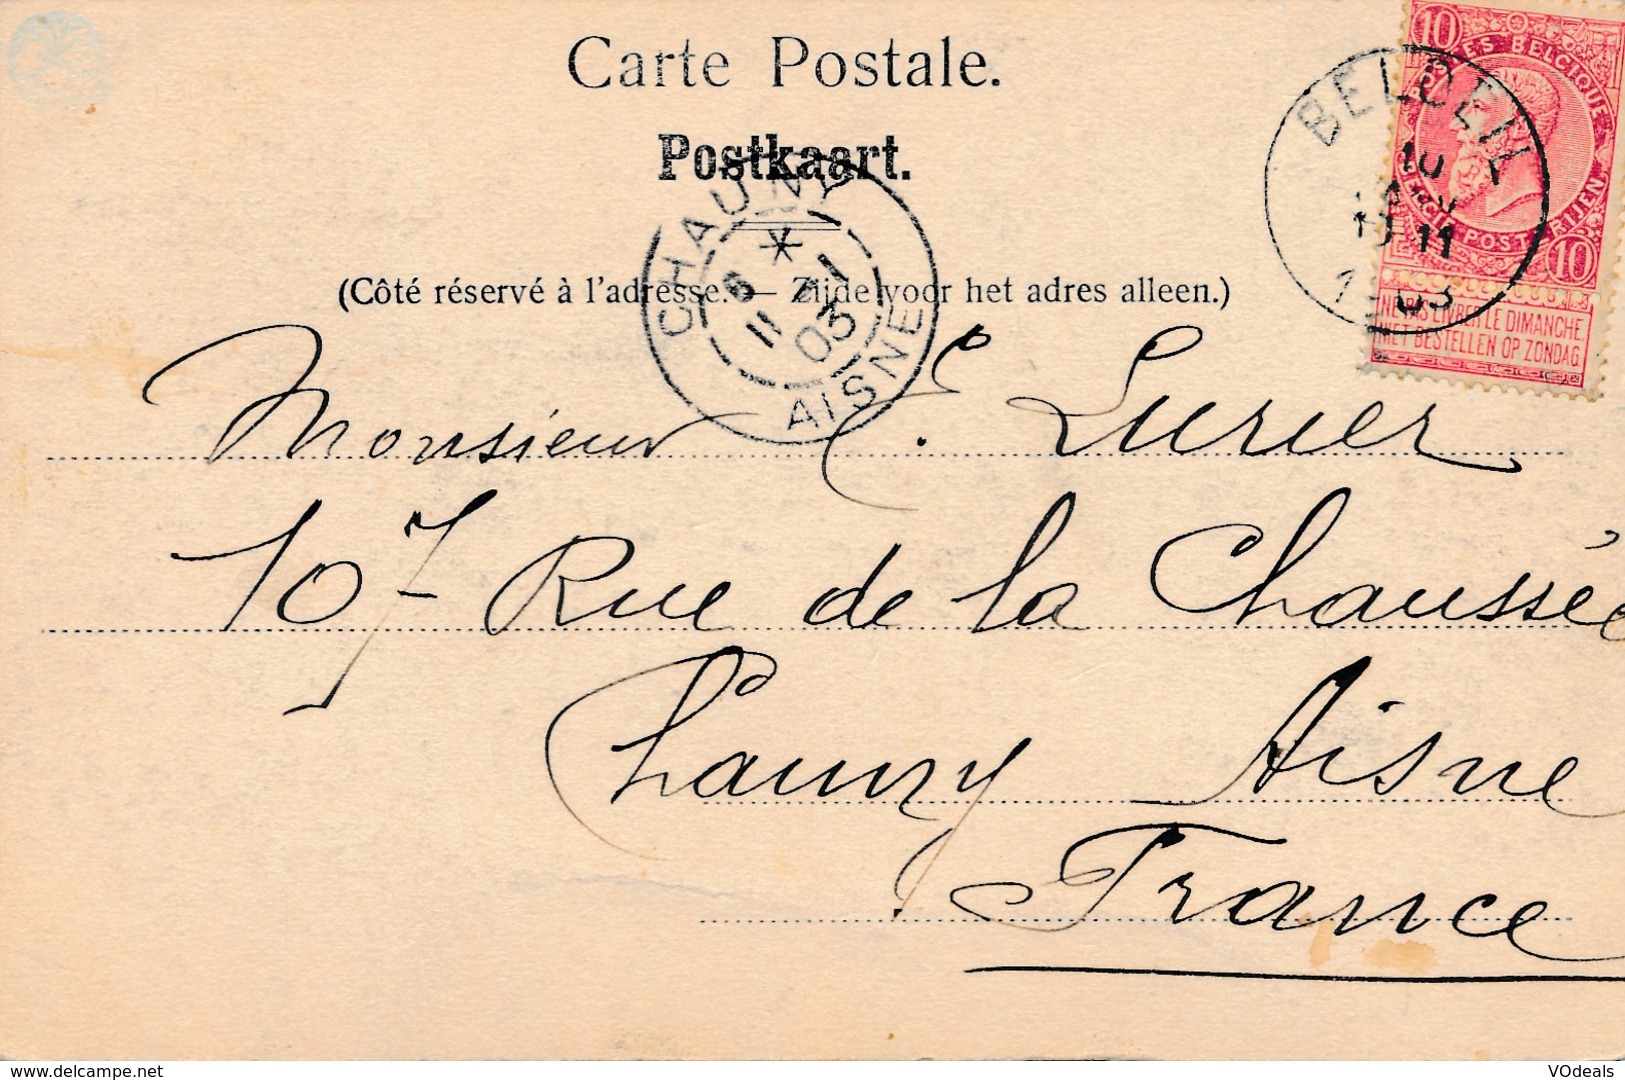 Carte Postale.
Postkaart.
(Côté réservé à l'adresse. — Zijde voor het adres alleen.)
CHAUNY
11 1
03
AISNE
BELOEIL
10
11
10
POSTES BELGIQUE
NE PAS LIVRER LE DIMANCHE
NIET BESTELLEN OP ZONDAG
10
Monsieur C. Lurier
107 - Rue de la Chaussée
Chauny Aisne
France
delcampe.net
VOdeals